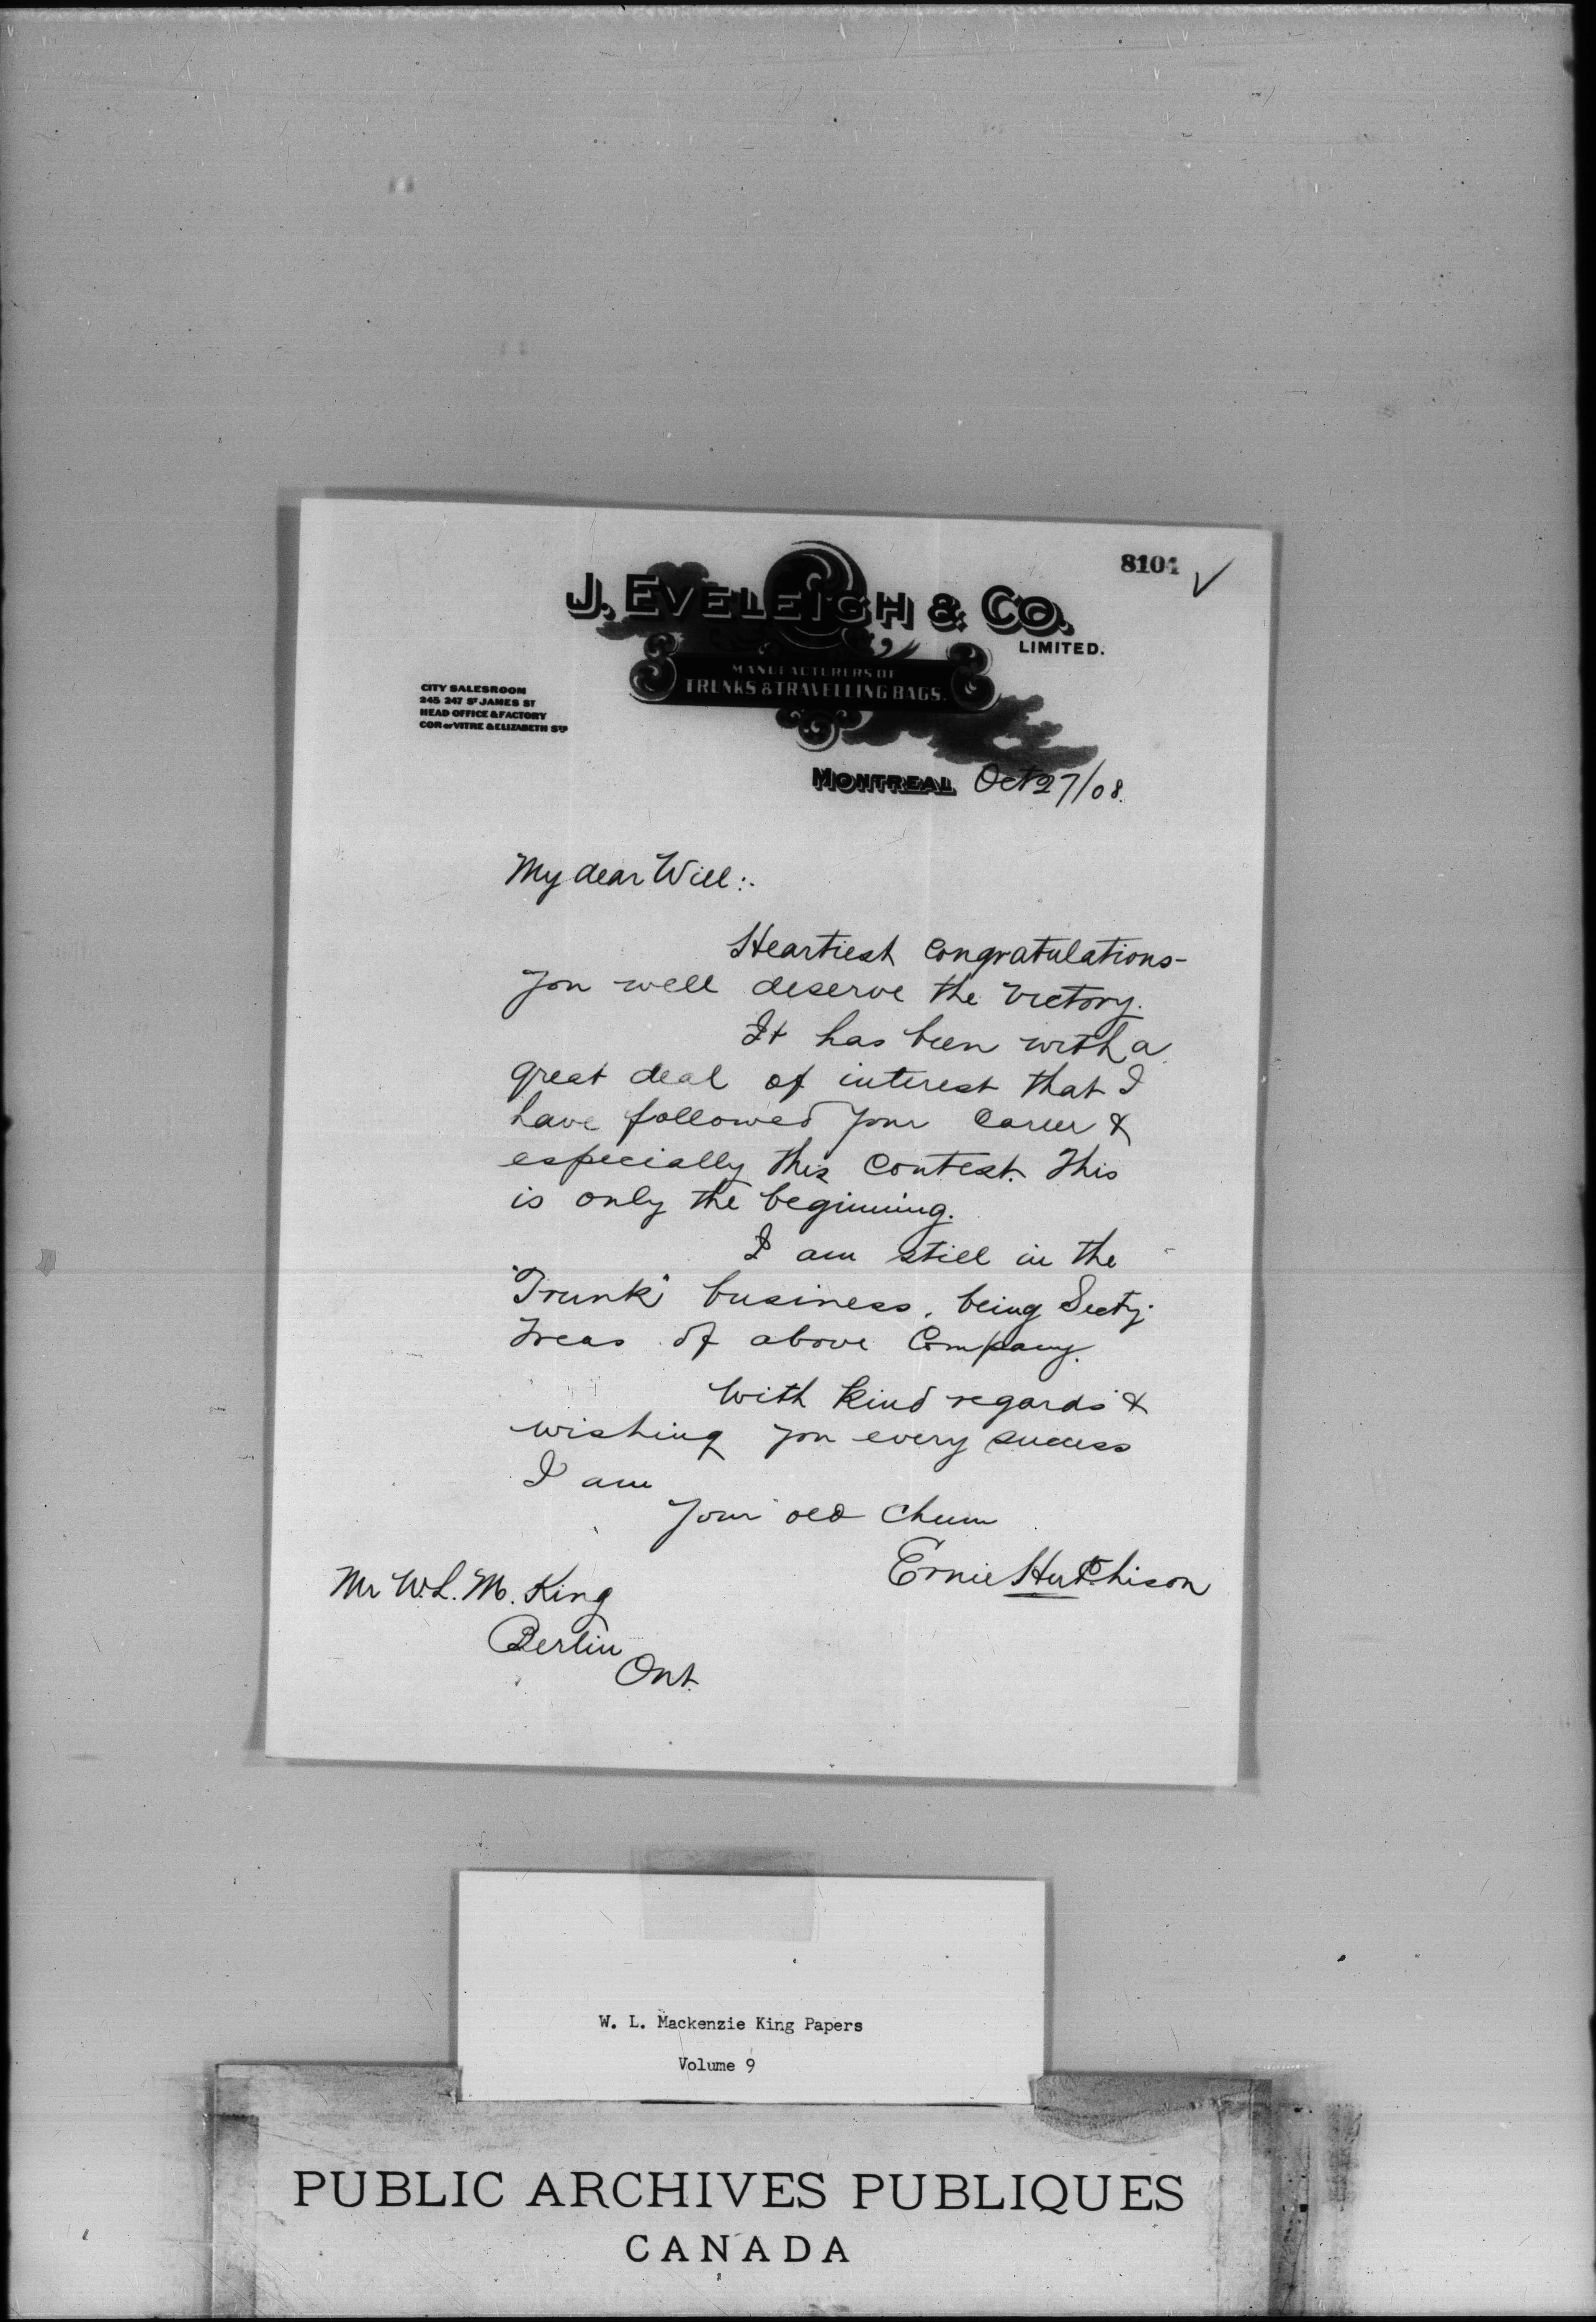 8104 ✓
J. EVELEIGH & CO.
LIMITED.
MANUFACTURERS OF
TRUNKS & TRAVELLING BAGS.
CITY SALESROOM
245 247 ST JAMES ST
HEAD OFFICE & FACTORY
COR OF VITRE & ELIZABETH STS
MONTREAL Oct 27/08.
My dear Will:.
Heartiest Congratulations-
you well deserve the victory.
It has been with a
great deal of interest that I
have followed your Career &
especially this Contest. This
is only the beginning.
I am still in the
"Trunk" business, being Secty.
Treas of above Company.
With kind regards &
wishing you every success
I am
Your old Chum
Ernie Hutchison
Mr W.L.M. King
Berlin
Ont.
W. L. Mackenzie King Papers
Volume 9
PUBLIC ARCHIVES PUBLIQUES
CANADA